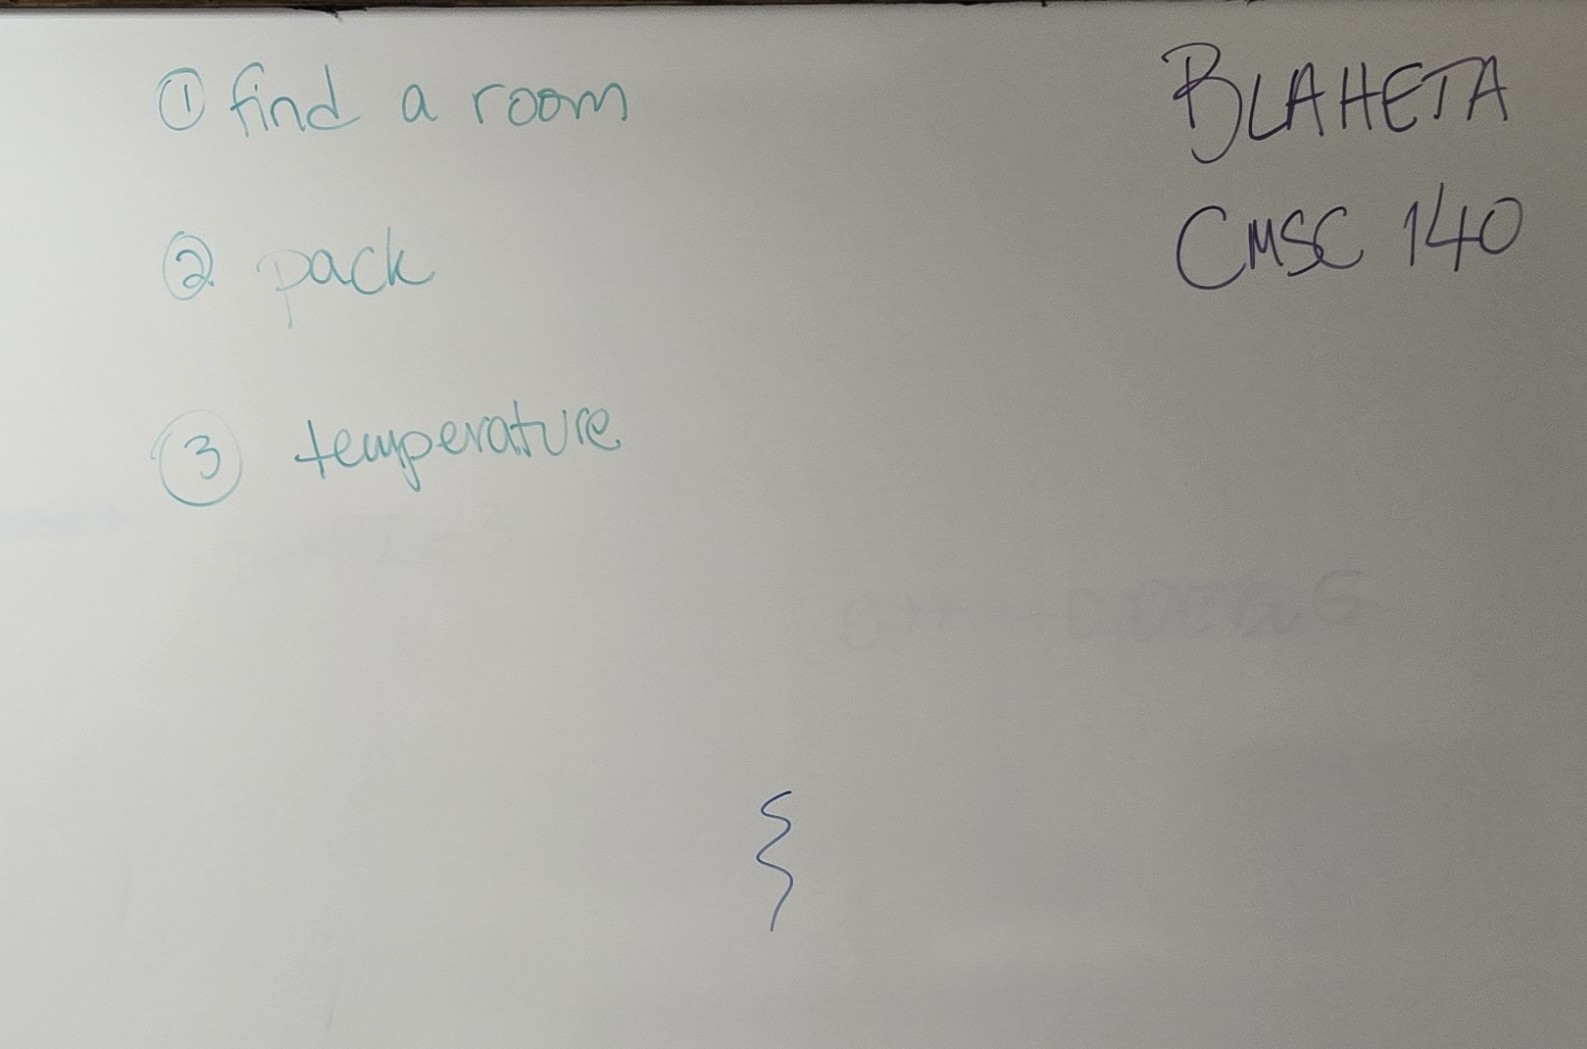 ① find a room
② pack
③ temperature
BLAHETA
CMSC 140